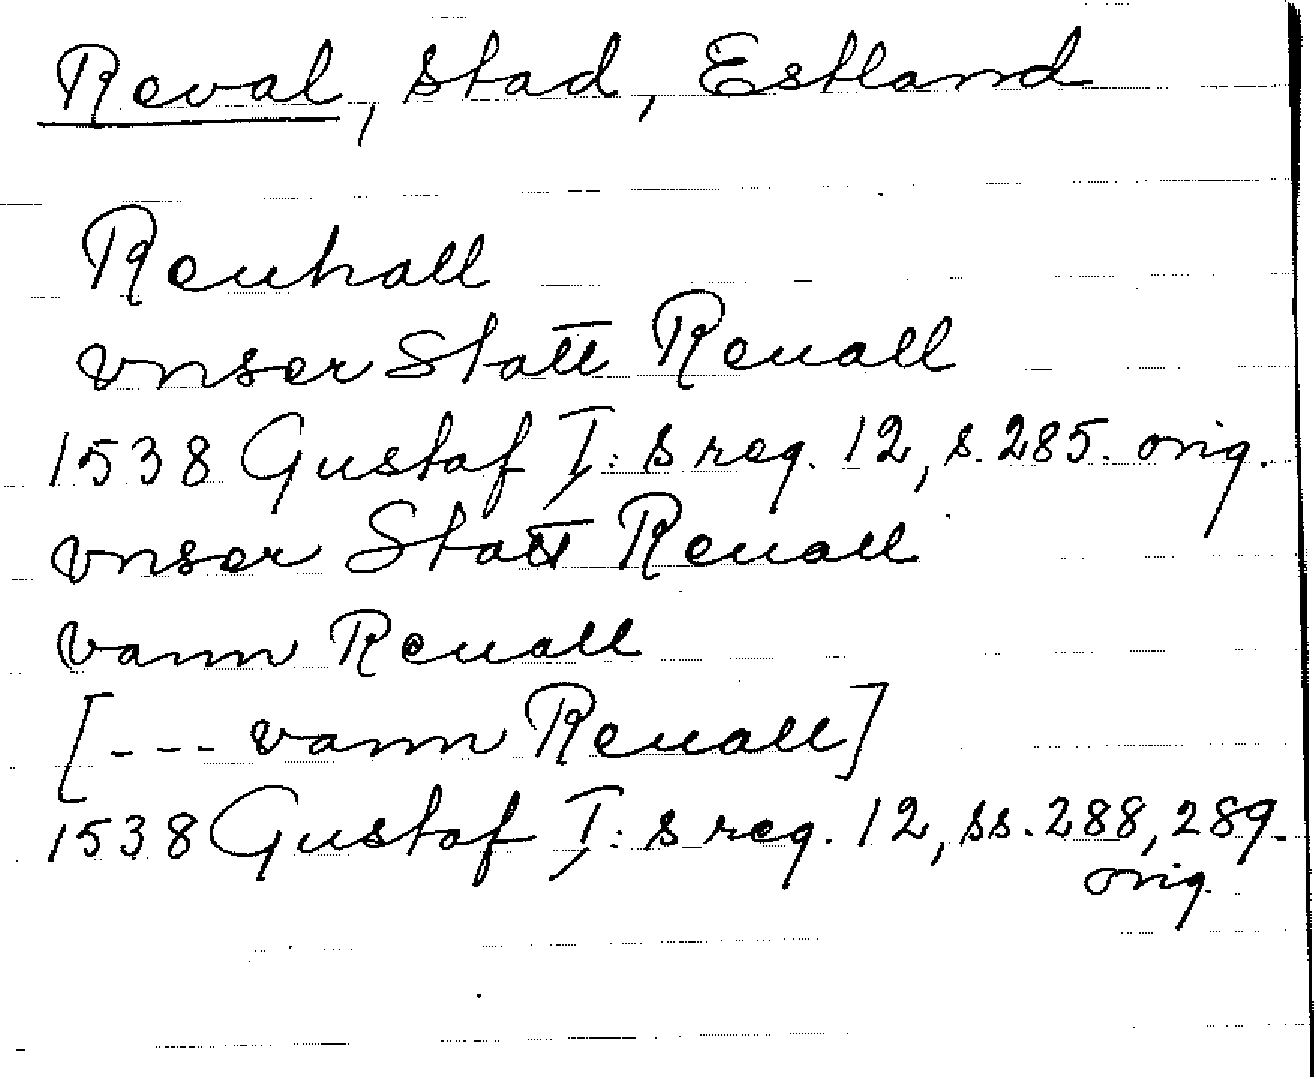 Reval, stad, Estland
Reuhall
vnser Statt Reuall
1538 Gustaf I:s reg. 12, s. 285. orig.
vnser Statt Reuall
vann Reuall
[--- vann Reuall]
1538 Gustaf I:s reg. 12, ss. 288, 289.
orig.